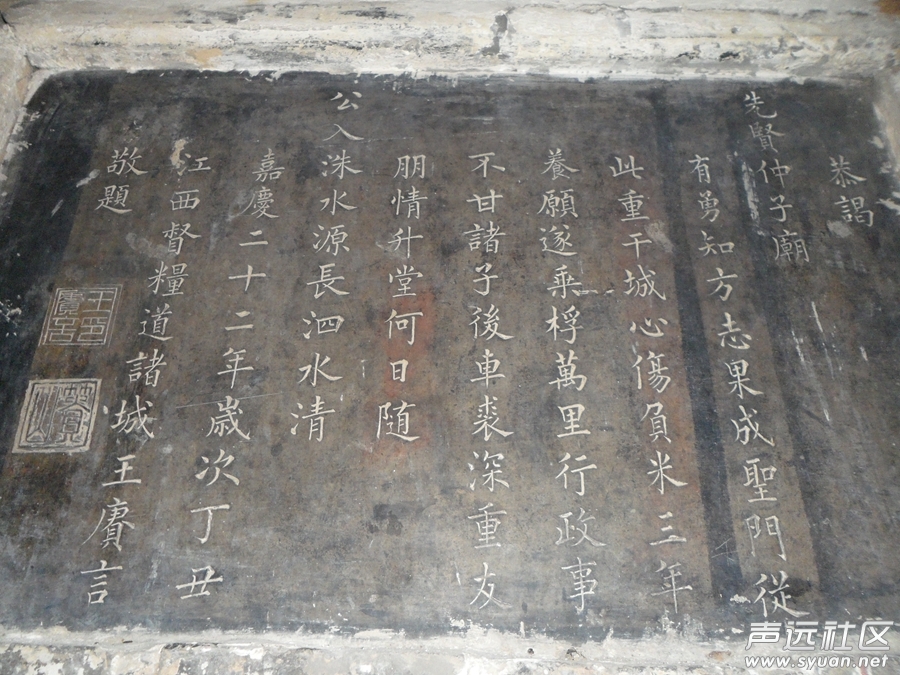 恭謁
先賢仲子廟
有勇知方志果成聖門從
此重干城心傷負米三年
養願遂乘桴萬里行政事
不甘諸子後車裘深重友
朋情升堂何日随
公入洙水源長泗水清
嘉慶二十二年歲次丁丑
江西督糧道諸城王賡言
敬題
声远社区
www.syuan.net